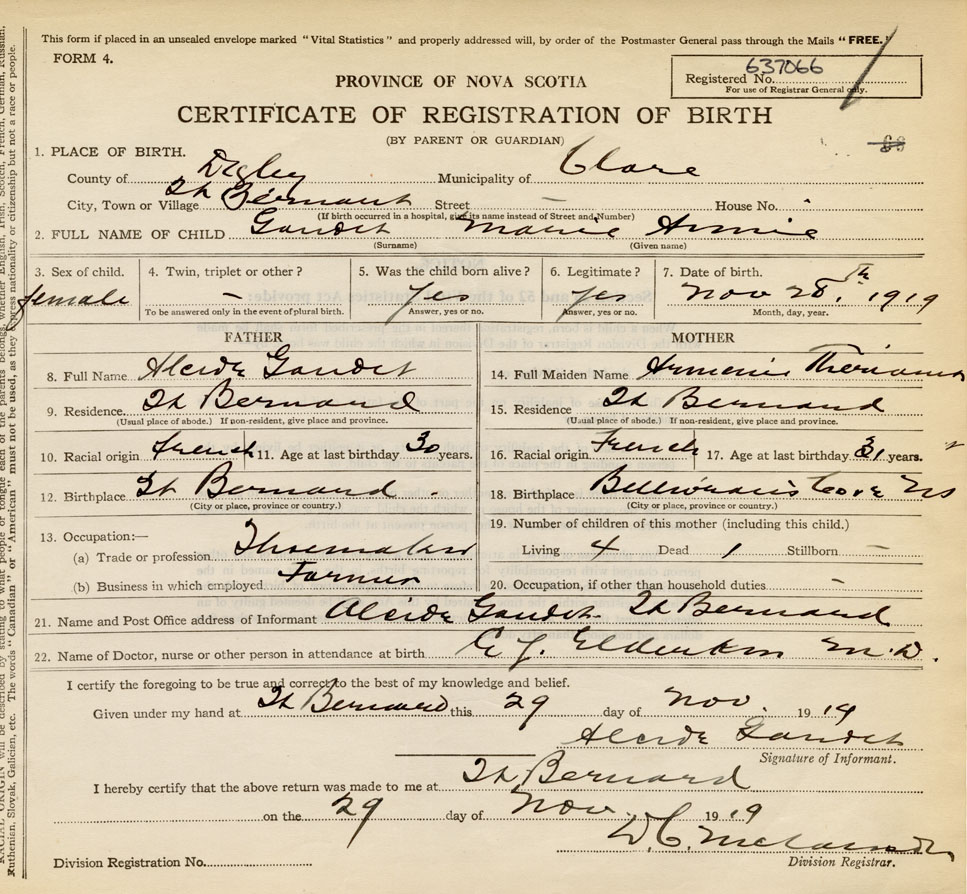 This form if placed in an unsealed envelope marked "Vital Statistics" and properly addressed will, by order of the Postmaster General pass through the Mails "FREE."
FORM 4.
Registered No. 637066
For use of Registrar General only.
PROVINCE OF NOVA SCOTIA
CERTIFICATE OF REGISTRATION OF BIRTH
(BY PARENT OR GUARDIAN)
1. PLACE OF BIRTH.
County of Digby Municipality of Clare
City, Town or Village St Bernard Street — House No.
(If birth occurred in a hospital, give its name instead of Street and Number)
2. FULL NAME OF CHILD Gaudet Marie Annie
(Surname) (Given name)
3. Sex of child. 4. Twin, triplet or other? 5. Was the child born alive? 6. Legitimate? 7. Date of birth.
female — Yes yes Nov 28th, 1919
To be answered only in the event of plural birth. Answer, yes or no. Answer, yes or no. Month, day, year.
FATHER
8. Full Name Alcide Gaudet
9. Residence St Bernard
(Usual place of abode.) If non-resident, give place and province.
10. Racial origin french 11. Age at last birthday 30 years.
12. Birthplace St Bernard
(City or place, province or country.)
13. Occupation:—
(a) Trade or profession
(b) Business in which employed Farmer
MOTHER
14. Full Maiden Name
15. Residence St Bernard
(Usual place of abode.) If non-resident, give place and province.
16. Racial origin French 17. Age at last birthday 31 years.
18. Birthplace Cove NS
(City or place, province or country.)
19. Number of children of this mother (including this child.)
Living 4 Dead 1 Stillborn —
20. Occupation, if other than household duties. —
21. Name and Post Office address of Informant Alcide Gaudet St Bernard
22. Name of Doctor, nurse or other person in attendance at birth E. J. Elderkin M.D.
I certify the foregoing to be true and correct to the best of my knowledge and belief.
Given under my hand at St Bernard this 29 day of Nov. 1919
Alcide Gaudet
Signature of Informant.
I hereby certify that the above return was made to me at St Bernard
on the 29 day of Nov. 1919
Division Registration No.
Division Registrar.